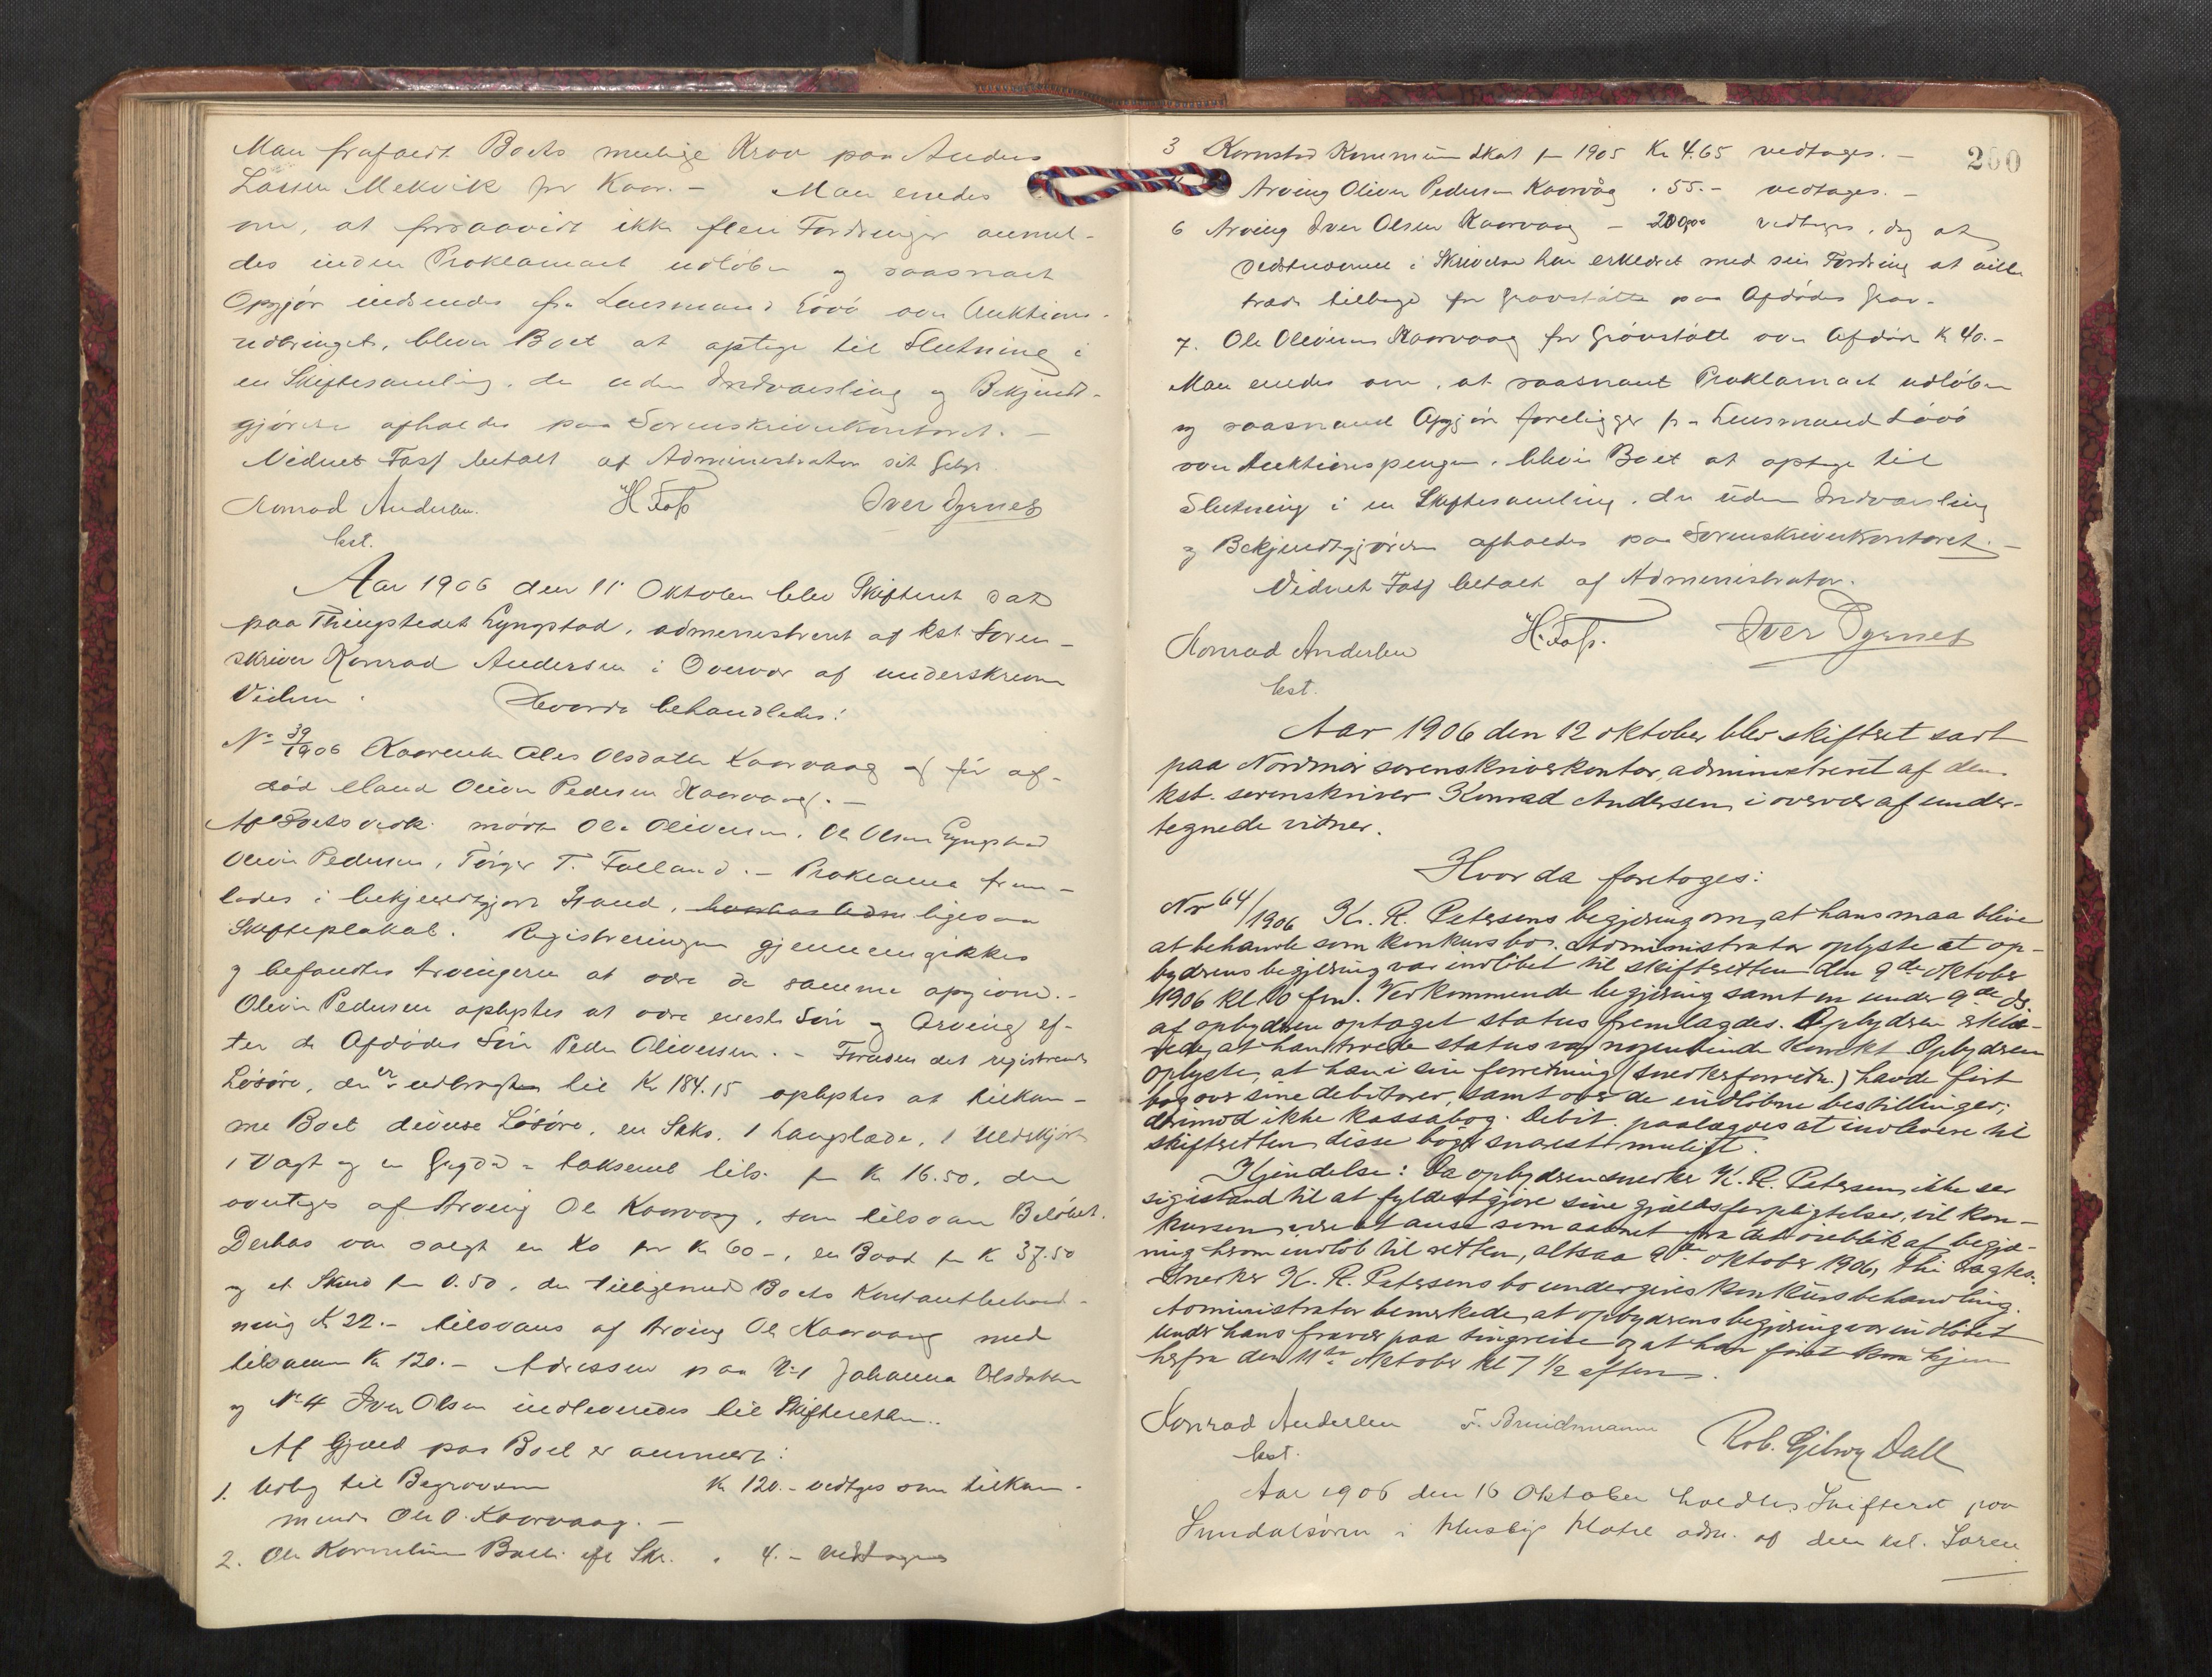 Man frafaldt Boets mulige Krav paa Anders
Larsen Mekvik for Kaar. – Man enedes
om, at forsaavidt ikke flere Fordringer anmel-
des inden Proklamaet udløber og saasnart
Opgjør indsendes fra Lensmand Løvø over Auktions-
udbringet, bliver Boet at optage til Slutning i
en Skiftesamling, der uden Indvarsling og Bekjendt-
gjørelse afholdes paa Sorenskriverkontoret. –
Vidnet Foss betalt af Administrator sit Gebyr.
Konrad Andersen. H Foss Iver Dyrnes
kst.
Aar 1906 den 11 Oktober blev Skifteret sat
paa Thingstedet Lyngstad, administreret af kst. Soren-
skriver Konrad Andersen i Overvær af underskrevne
Vidner. Hvorda behandledes:
No 39/1906 Kaarenke Ales Olsdatter Kaarvaag og før af-
død Mand Oliver Pedersen Kaarvaag. –
Af Boets vedk. mødte Ole Oliversen, Ole Olsen Lyngstad
Oliver Pedersen, Tørger T. Folland. – Proklama frem-
lagdes i bekjendtgjort Stand, ligesaa
Skifteplakat. Registreringen gjennemgikkes
og befandtes Arvingerne at være de samme opgivne. –
Oliver Pedersen oplystes at være eneste Søn og Arving ef-
ter de Afdødes Søn Peder Oliversen. – Foruden det registrerede
Løsøre, der er udbragt til Kr 184.15 oplystes at tilkom-
me Boet diverse Løsøre, en Saks, 1 Langlade, 1 Uldskjørt
1 Vægt og en takseret tils. for Kr 16.50, der
overtages af Arving Ole Kaarvaag, som tilsvarer Beløbet.
Derhos var solgt en Ko for Kr 60 –, en Baad for K 37.50
og et Skind for 0.50, der tilligemed Boets Kontantbehold-
ning K 22.– tilsvares af Arving Ole Kaarvaag med
tilsammen Kr 120.– Adressen paa No 1 Johanna Olsdatter
og No 4 Iver Olsen indleveredes til Skifteretten..
Af Gjæld paa Boet er anmeldt:
1. Udlæg til Begravelsen Kr 120.– vedtges som tilkom-
mende Ole O. Kaarvaag. –
2. Ole Kornelius efl Skr. " 4.– vedtages
200
3 Kornstad Kommune Skat for 1905 Kr 4.65 vedtages. –
Arving Oliver Pedersen Kaarvåg . 55.– vedtages. –
6 Arving Iver Olsen Kaarvaag – 200,00 vedtages, dog at
vedkommende i Skrivelse har erklæret med sin Fordring at ville
træde tilbage for Gravstøtte paa Afdødes Grav.
7. Ole Oliversen Kaarvaag for Gravstøtte over Afdøde K 40.–
Man enedes om, at saasnart Proklamaet udløber
og saasnart Opgjør foreligger fra Lensmand Løvø
over Auktionspengene, bliver Boet at optage til
Slutning i en Skiftesamling, der uden Indvarsling
og Bekjendtgjørelse afholdes paa Sorenskriverkontoret. –
Vidnet Foss betalt af Administrator.
Konrad Andersen H. Foss. Iver Dyrnes
kst.
Aar 1906 den 12 oktober blev skiftret sart
paa Nordmør sorenskriverkontor, administreret af den
kst. sorenskriver Konrad Andersen, i overvær af under-
tegnede vidner.
Hvor da foretoges:
Nr 64/1906 K. R. Petersens begjæring om, at hans maa blive
at behandle som konkursbo. Administrator oplyste at op-
byderens begjæring var indløbet til skifteretten den 9de oktober
1906 kl 10 fm. Vedkommende begjæring samt en under 9de ds.
af opbyderen optaget status fremlagdes. Opbyderen erklæ-
rede, at han troede status var nogenlunde korrekt. Opbyderen
oplyste, at han i sin forretning (snedkerforretn.) havde ført
bog over sine debitorer, samt over de indløbne bestillinger;
derimod ikke kassabog. Debit. paalagdes at indlevere til
skifteretten disse bøger snarest muligt.
Kjendelse: Da opbyderen snedker K. R. Petersen, ikke ser
sig istand til at fyldestgjøre sine gjældsforpligtelser, vil kon-
kursen være at anse som aabnet fra det øieblik af begjæ-
ring herom indløb til retten, altsaa 9de oktober 1906, thi eragtes:
Snedker K. R. Petersens bo undergives konkursbehandling.
Administrator bemerkede, at opbyderens begjæring var indløbet
under hans fravær paa tingreise og at han først kom hjem
herfra den 11te oktober kl 7 1/2 eftem.
Konrad Andersen F. Bruidsmann Rob. Gjelvog Dall
kst.
Aar 1906 den 16 Oktober holdtes Skifteret paa
Sundalsøren i Husbys Hotel adm. af den kst. Soren